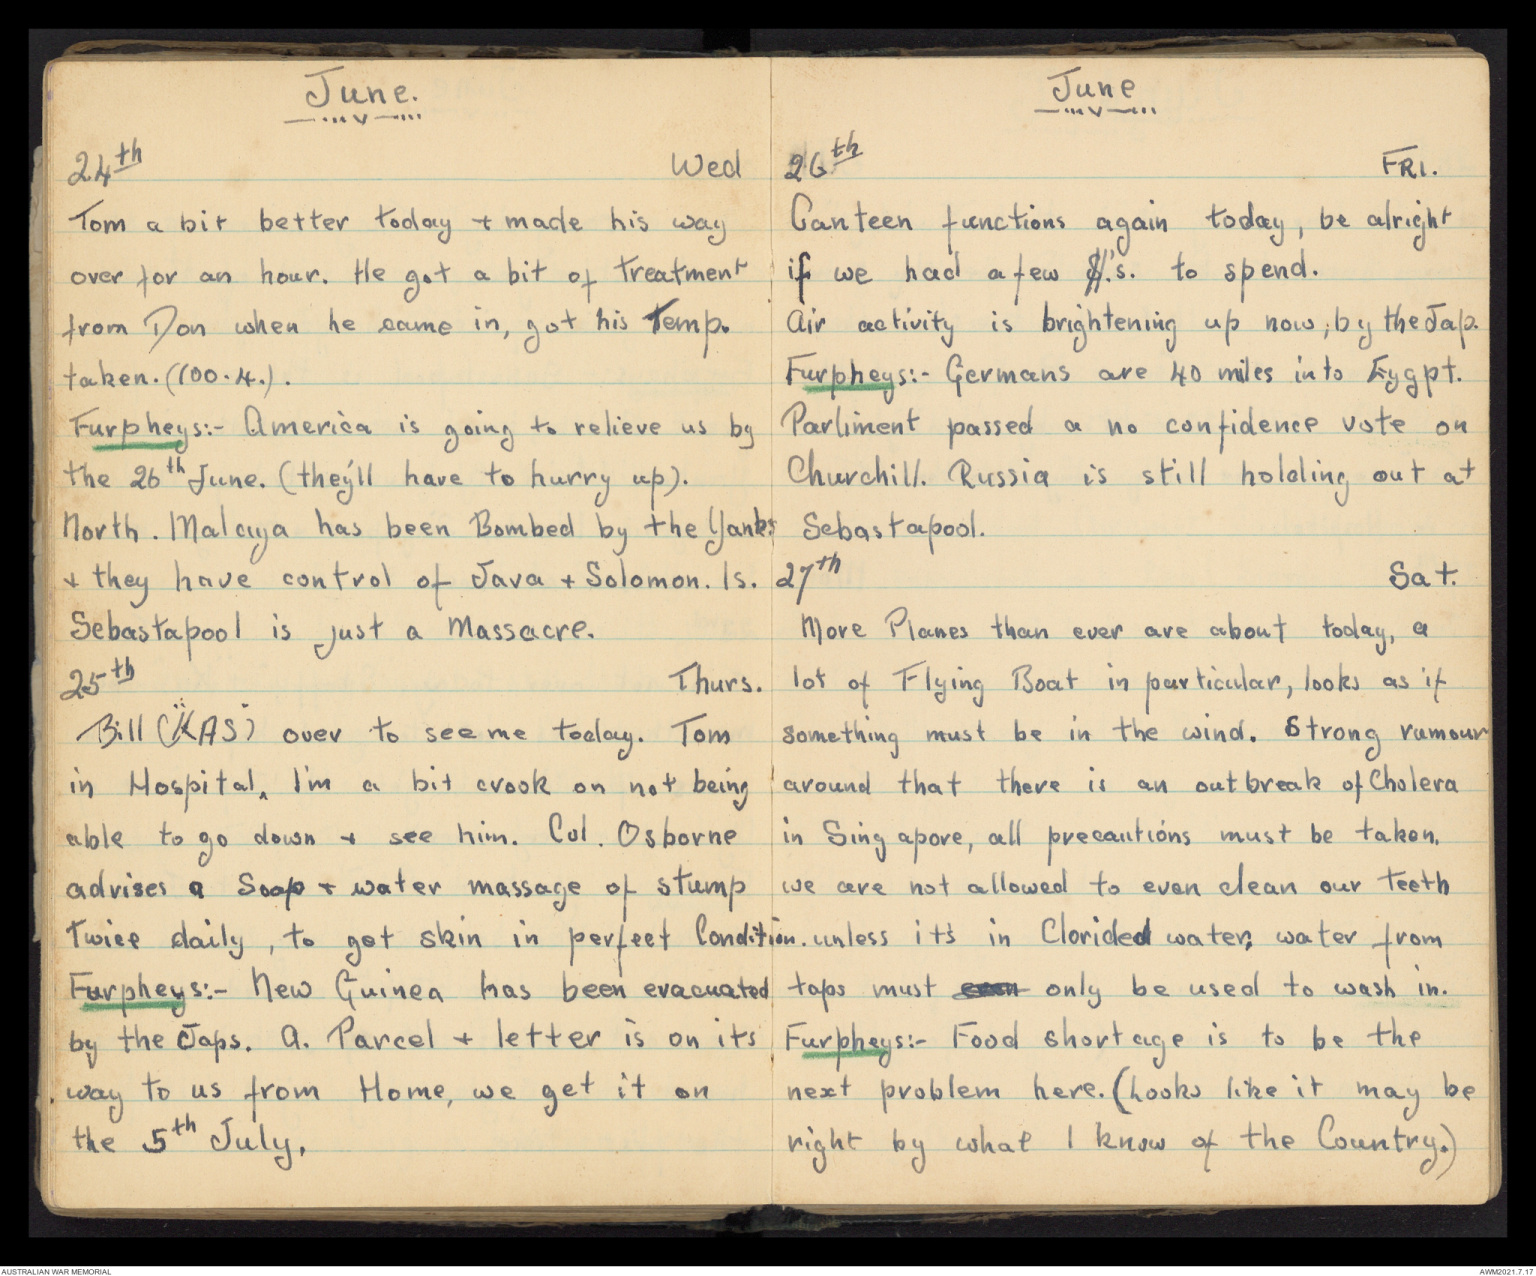 June.
24th Wed
Tom a bit better today + made his way
over for an hour. He got a bit of treatment
from Don when he came in, got his Temp.
taken. (100.4.).
Furpheys:- America is going to relieve us by
the 26th June. (they'll have to hurry up).
North. Malaya has been Bombed by the Yanks
+ they have control of Java + Solomon. Is.
Sebastapool is just a Massacre.
25th Thurs.
Bill (KAS) over to see me today. Tom
in Hospital, I'm a bit crook on not being
able to go down + see him. Col. Osborne
advises a Soap + water massage of stump
Twice daily, to get skin in perfect Condition.
Furpheys:- New Guinea has been evacuated
by the Japs. A. Parcel + letter is on its
way to us from Home, we get it on
the 5th July.
June
26th FRI.
Canteen functions again today, be alright
if we had a few $'s. to spend.
Air activity is brightening up now, by the Jap.
Furpheys:- Germans are 40 miles into Eygpt.
Parliment passed a no confidence vote on
Churchill. Russia is still holding out at
Sebastapool.
27th Sat.
More Planes than ever are about today, a
lot of Flying Boat in particular, looks as if
something must be in the wind. Strong rumour
around that there is an outbreak of Cholera
in Singapore, all precautions must be taken,
we are not allowed to even clean our Teeth
unless it's in Clorided water, water from
taps must only be used to wash in.
Furpheys:- Food shortage is to be the
next problem here. (Looks like it may be
right by what I know of the Country.)
AUSTRALIAN WAR MEMORIAL
AWM2021.7.17